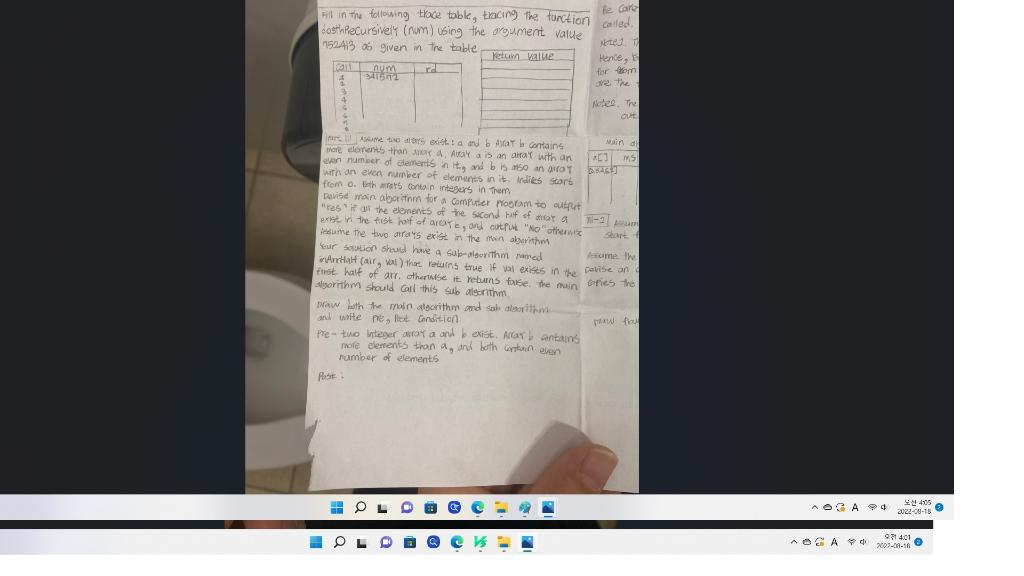 Fill in the following trace table, tracing the function
dosthRecursively (num) using the argument value
752413 as given in the table
return value
call num rd
1 341572
2
3
4
5
6
7
8
Part III Assume two arrays exist: a and b Array b contains
more elements than array a. Array a is an array with an
even number of elements in it, and b is also an array
with an even number of elements in it. Indies start
from 0. Both arrays contain integers in them
Devise main algorithm for a computer program to output
"Yes" if all the elements of the second half of array a
exist in the first half of array b, and output "NO" otherwise
Assume the two arrays exist in the main algorithm
Your solution should have a sub-algorithm named
inArrHalf (arr, val) that returns true if val exists in the
first half of arr. otherwise it returns false. the main
algorithm should call this sub algorithm.
Draw both the main algorithm and sub algorithm
and write pre, Post Condition
Pre- two Integer array a and b exist. Array b contains
more elements than a, and both contain even
number of elements
Post:
Be care
called.
Note1. Th
Hence,
for from
are the
Note2. The
out
Main al
a[] ms
III-2 Assum
Start f
Assume the
Devise an
Copies the
Draw flow
오전 4:05
2022-08-18
오전 4:01
2022-08-18
A
A